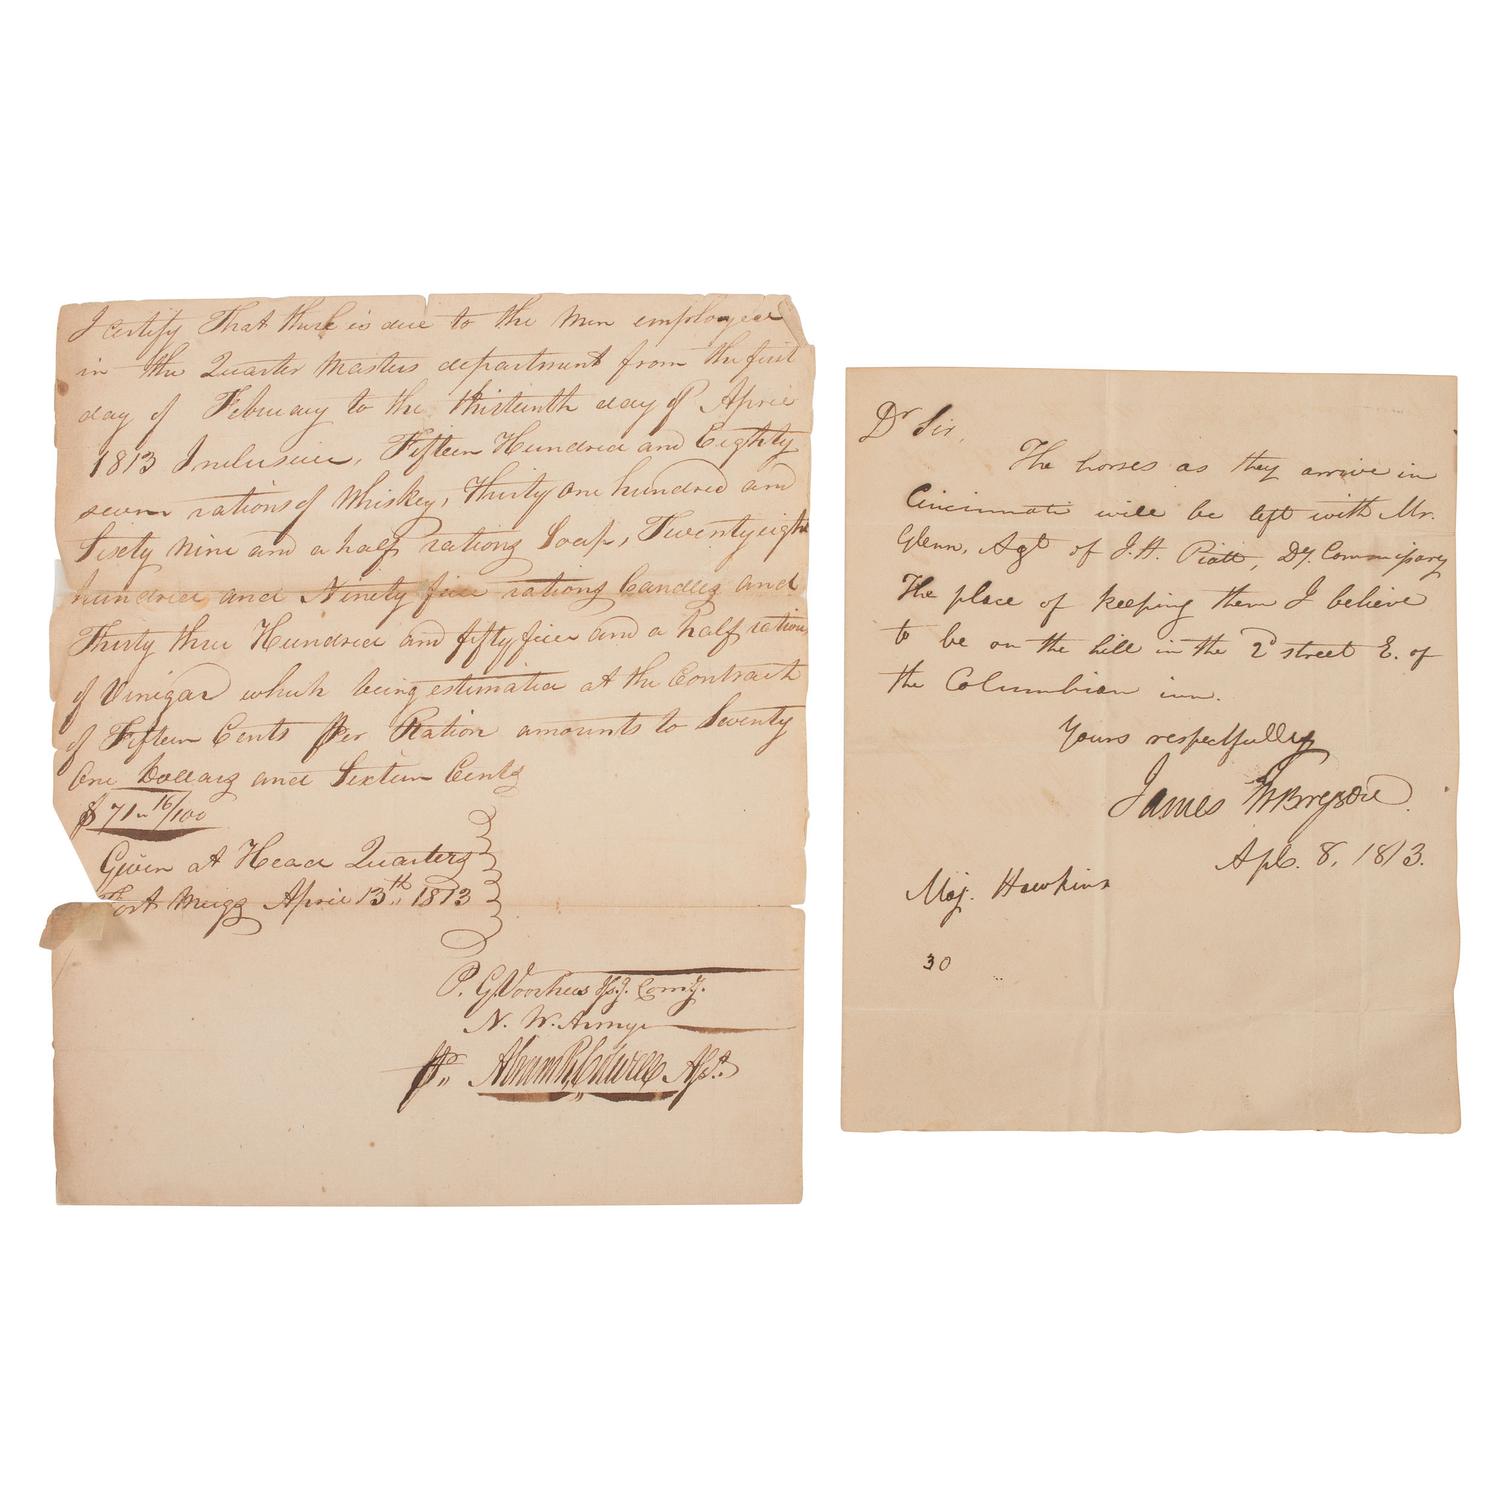 I certify That there is due to the men employed
in the Quarter Masters department from the first
day of February to the thirteenth day of April
1813 Inclusive, Fifteen Hundred and Eighty
seven rations of Whiskey, Thirty one hundred and
Sixty nine and a half rations Soap, Twenty eight
hundred and Ninety five rations Candles and
Thirty three Hundred and fifty five and a half rations
of Vinigar which being estimated at the Contract
of Fifteen Cents Per Ration amounts to Seventy
One Dollars and Sixteen Cents
$71 16/100
Given at Head Quarters
Fort Meigs April 13th 1813
P. G. Voorhees
N. W. Army
Dr Sir,
The horses as they arrive in
Cincinnati will be left with Mr.
Glenn, Agt of J. H. Piatt, Dy. Commissary
The place of keeping them I believe
to be on the hill in the 2d street E. of
the Columbian inn.
Yours respectfully
James
Apl. 8, 1813.
Maj. Hawkins
30